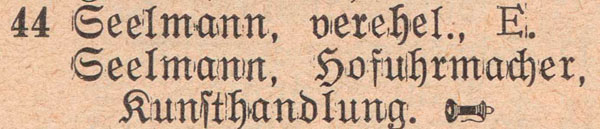 44 Seelmann, verehel., E.
Seelmann, Hofuhrmacher,
Kunsthandlung.